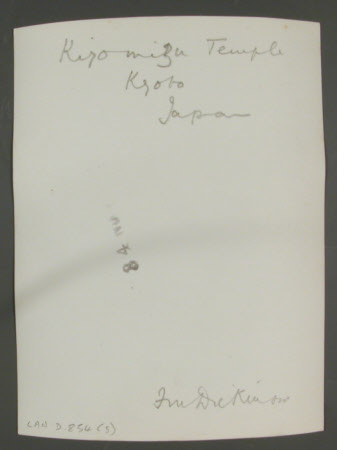 Kiyomizu Temple
Kyoto
Japan
84
Dickinson
LAN.D.854(3)